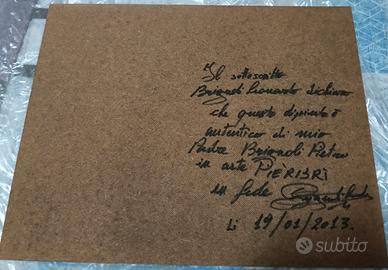 Il sottoscritto
Brignoli Leonardo dichiaro
che questo dipinto è
autentico di mio
Padre Brignoli Pietro
in arte PIERIBRI
in fede
li 19/01/2013.
subito